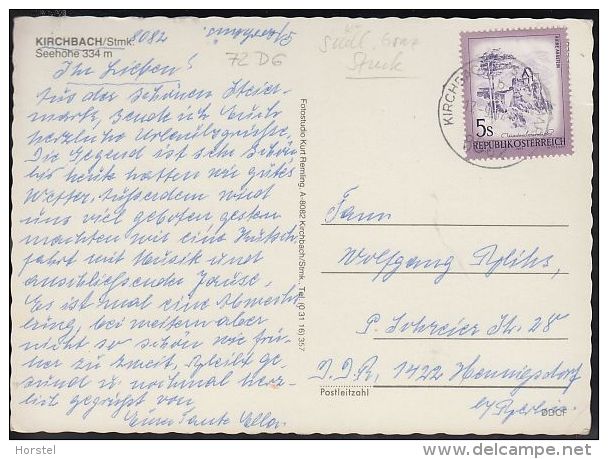 KIRCHBACH/Stmk. 8082
Seehöhe 334 m
72 D6
Südl. Graz
Ihr Lieben!
Aus der schönen Steier-
mark, sende ich Euch
herzliche Urlaubsgrüße.
Die Gegend ist sehr schön
bis heute hatten wir gutes
Wetter. Außerdem wird
uns viel geboten gestern
machten wir eine Kutsch
fahrt mit Musik und
anschließender Jause.
Es ist mal eine Abwechs
lung, bei weitem aber
nicht so schön wie frü-
her zu zweit. Bleibt ge-
sund u. nochmal herz-
lich gegrüßt von
Eurer Tante Ella.
Fotostudio Kurt Remling, A-8082 Kirchbach/Stmk., Tel. (0 31 16) 357
KIRCHBACH
5 S
REPUBLIK ÖSTERREICH
Fam
Wolfgang
P. Schreier Str. 28
D.D.R. 1422 Hennigsdorf
Postleitzahl
b/Berlin.
Horstel
www.delcampe.net